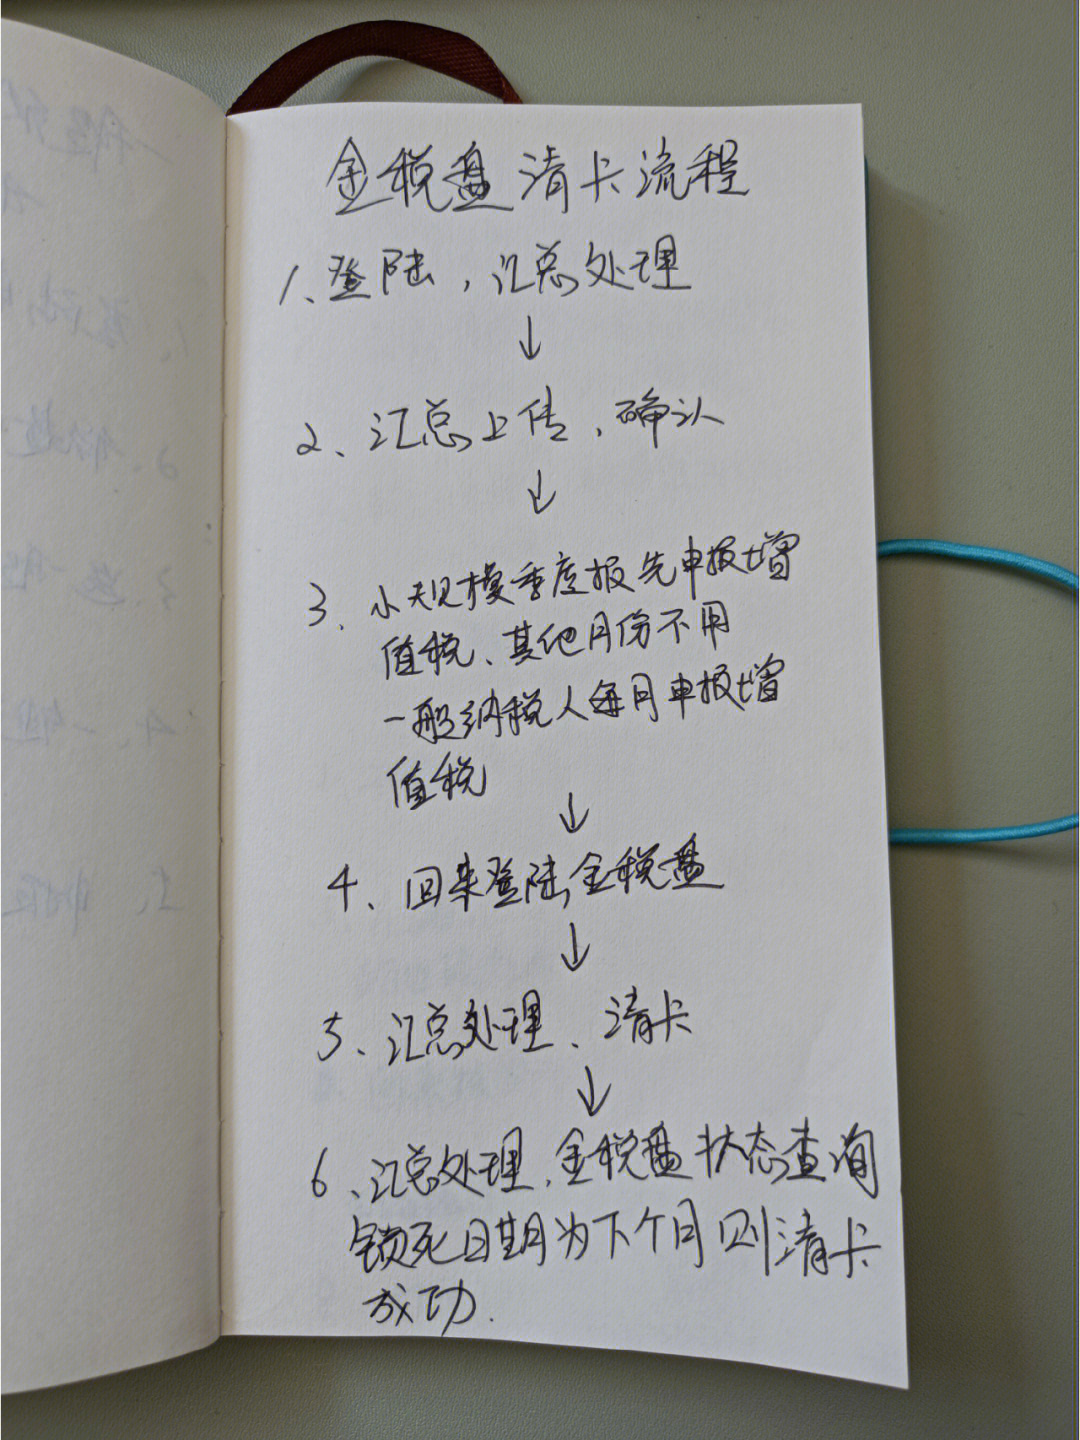 金税盘清卡流程
1、登陆，汇总处理
↓
2、汇总上传、确认
↓
3、小规模季度报先申报增
值税、其他月份不用
一般纳税人每月申报增
值税
↓
4、回来登陆金税盘
↓
5、汇总处理、清卡
↓
6、汇总处理、金税盘状态查询
锁死日期为下个月则清卡
成功.